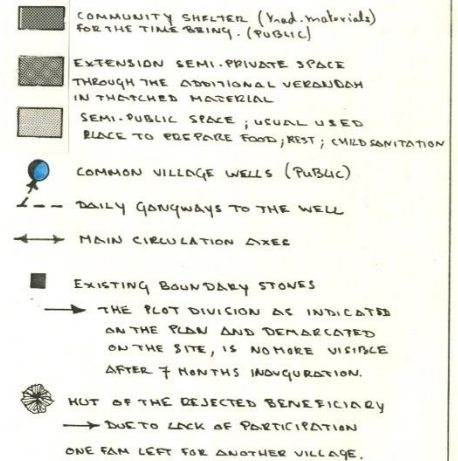 COMMUNITY SHELTER (trad. materials)
FOR THE TIME BEING. (PUBLIC)
EXTENSION SEMI-PRIVATE SPACE
THROUGH THE ADDITIONAL VERANDAH
IN THATCHED MATERIAL
SEMI-PUBLIC SPACE ; USUAL USED
PLACE TO PREPARE FOOD ; REST ; CHILD SANITATION
COMMON VILLAGE WELLS (PUBLIC)
DAILY GANGWAYS TO THE WELL
MAIN CIRCULATION AXES
EXISTING BOUNDARY STONES
THE PLOT DIVISION AS INDICATED
ON THE PLAN AND DEMARCATED
ON THE SITE, IS NO MORE VISIBLE
AFTER 7 MONTHS INAUGURATION.
HUT OF THE REJECTED BENEFICIARY
DUE TO LACK OF PARTICIPATION
ONE FAM LEFT FOR ANOTHER VILLAGE.